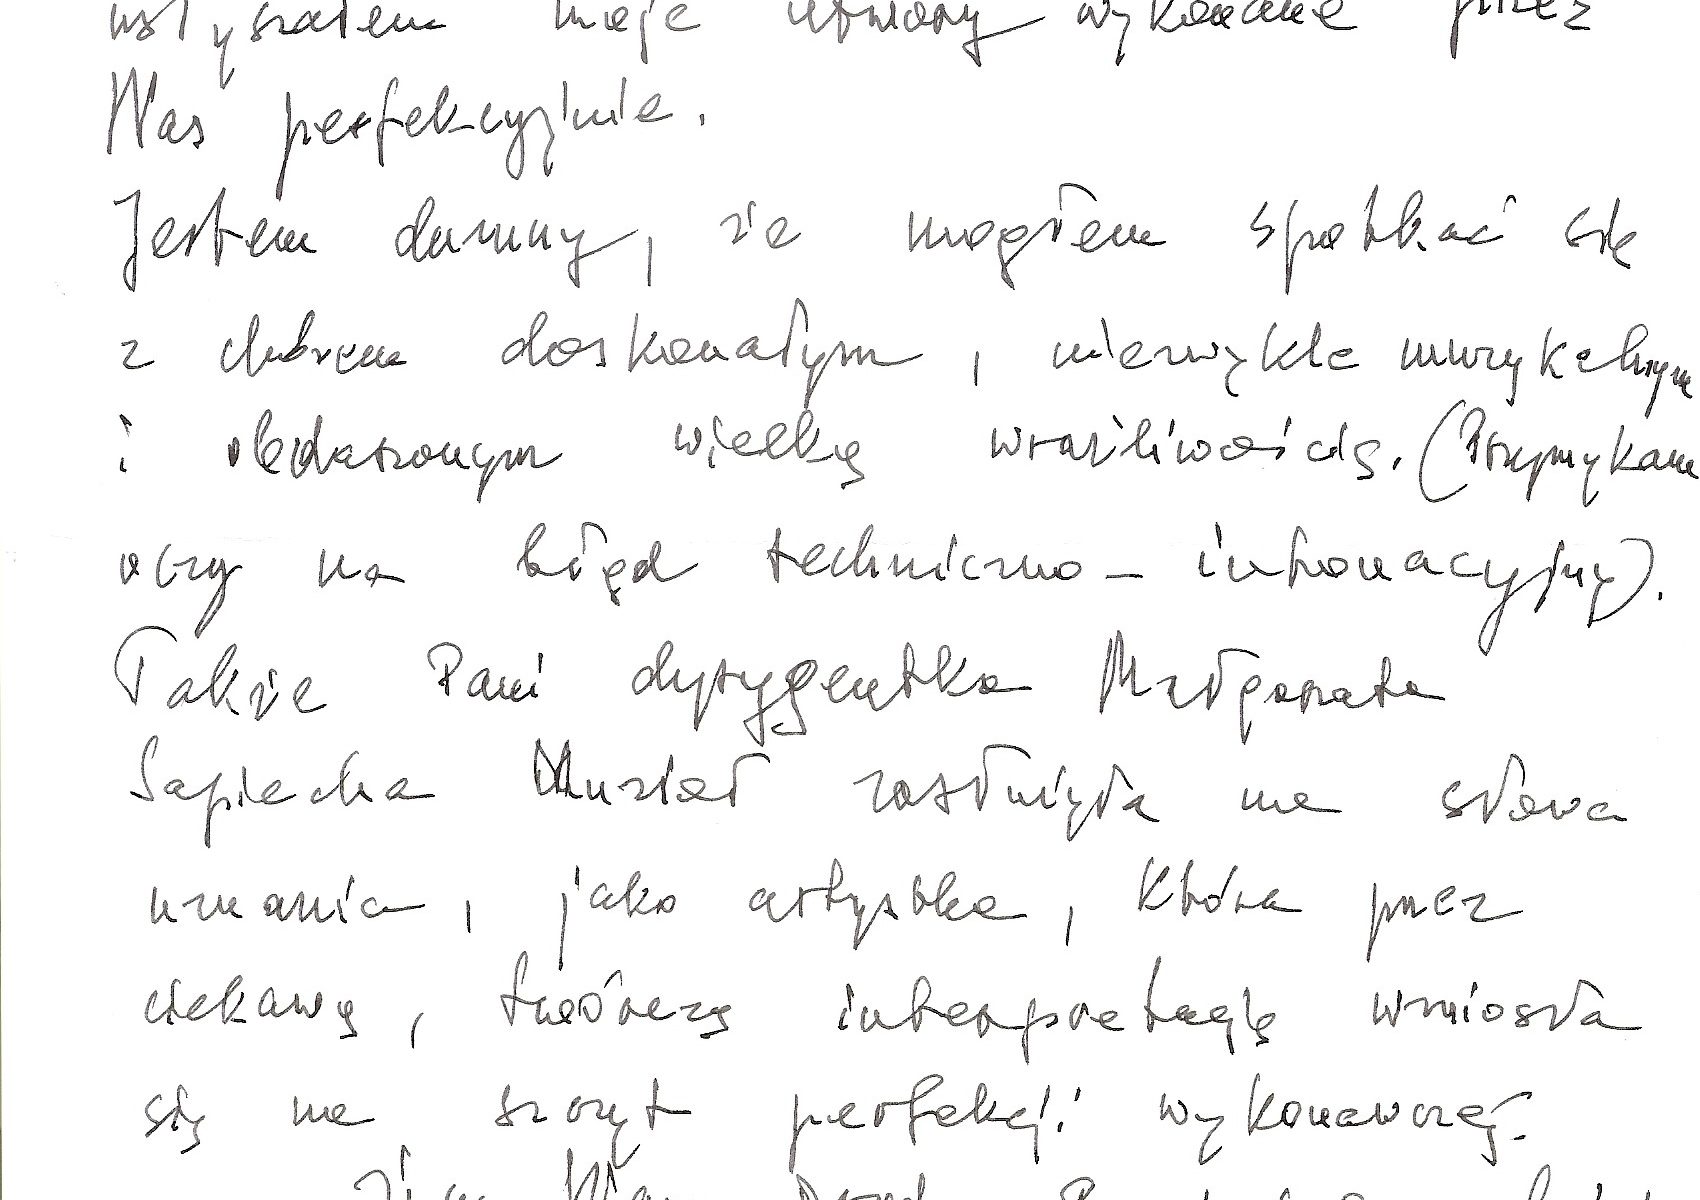 usłyszałem moje utwory wykonane przez
Was perfekcyjnie.
Jestem dumny, że mogłem spotkać się
z chórem doskonałym, niezwykle muzykalnym
i obdarzonym wielką wrażliwością. (Przymykam
oczy na błąd techniczno-intonacyjny).
Także Pani dyrygentka Małgorzata
Sapiecha Muzioł zasłużyła na słowa
uznania, jako artystka, która przez
ciekawą, twórczą interpretację wzniosła
się na szczyt perfekcji wykonawczej.